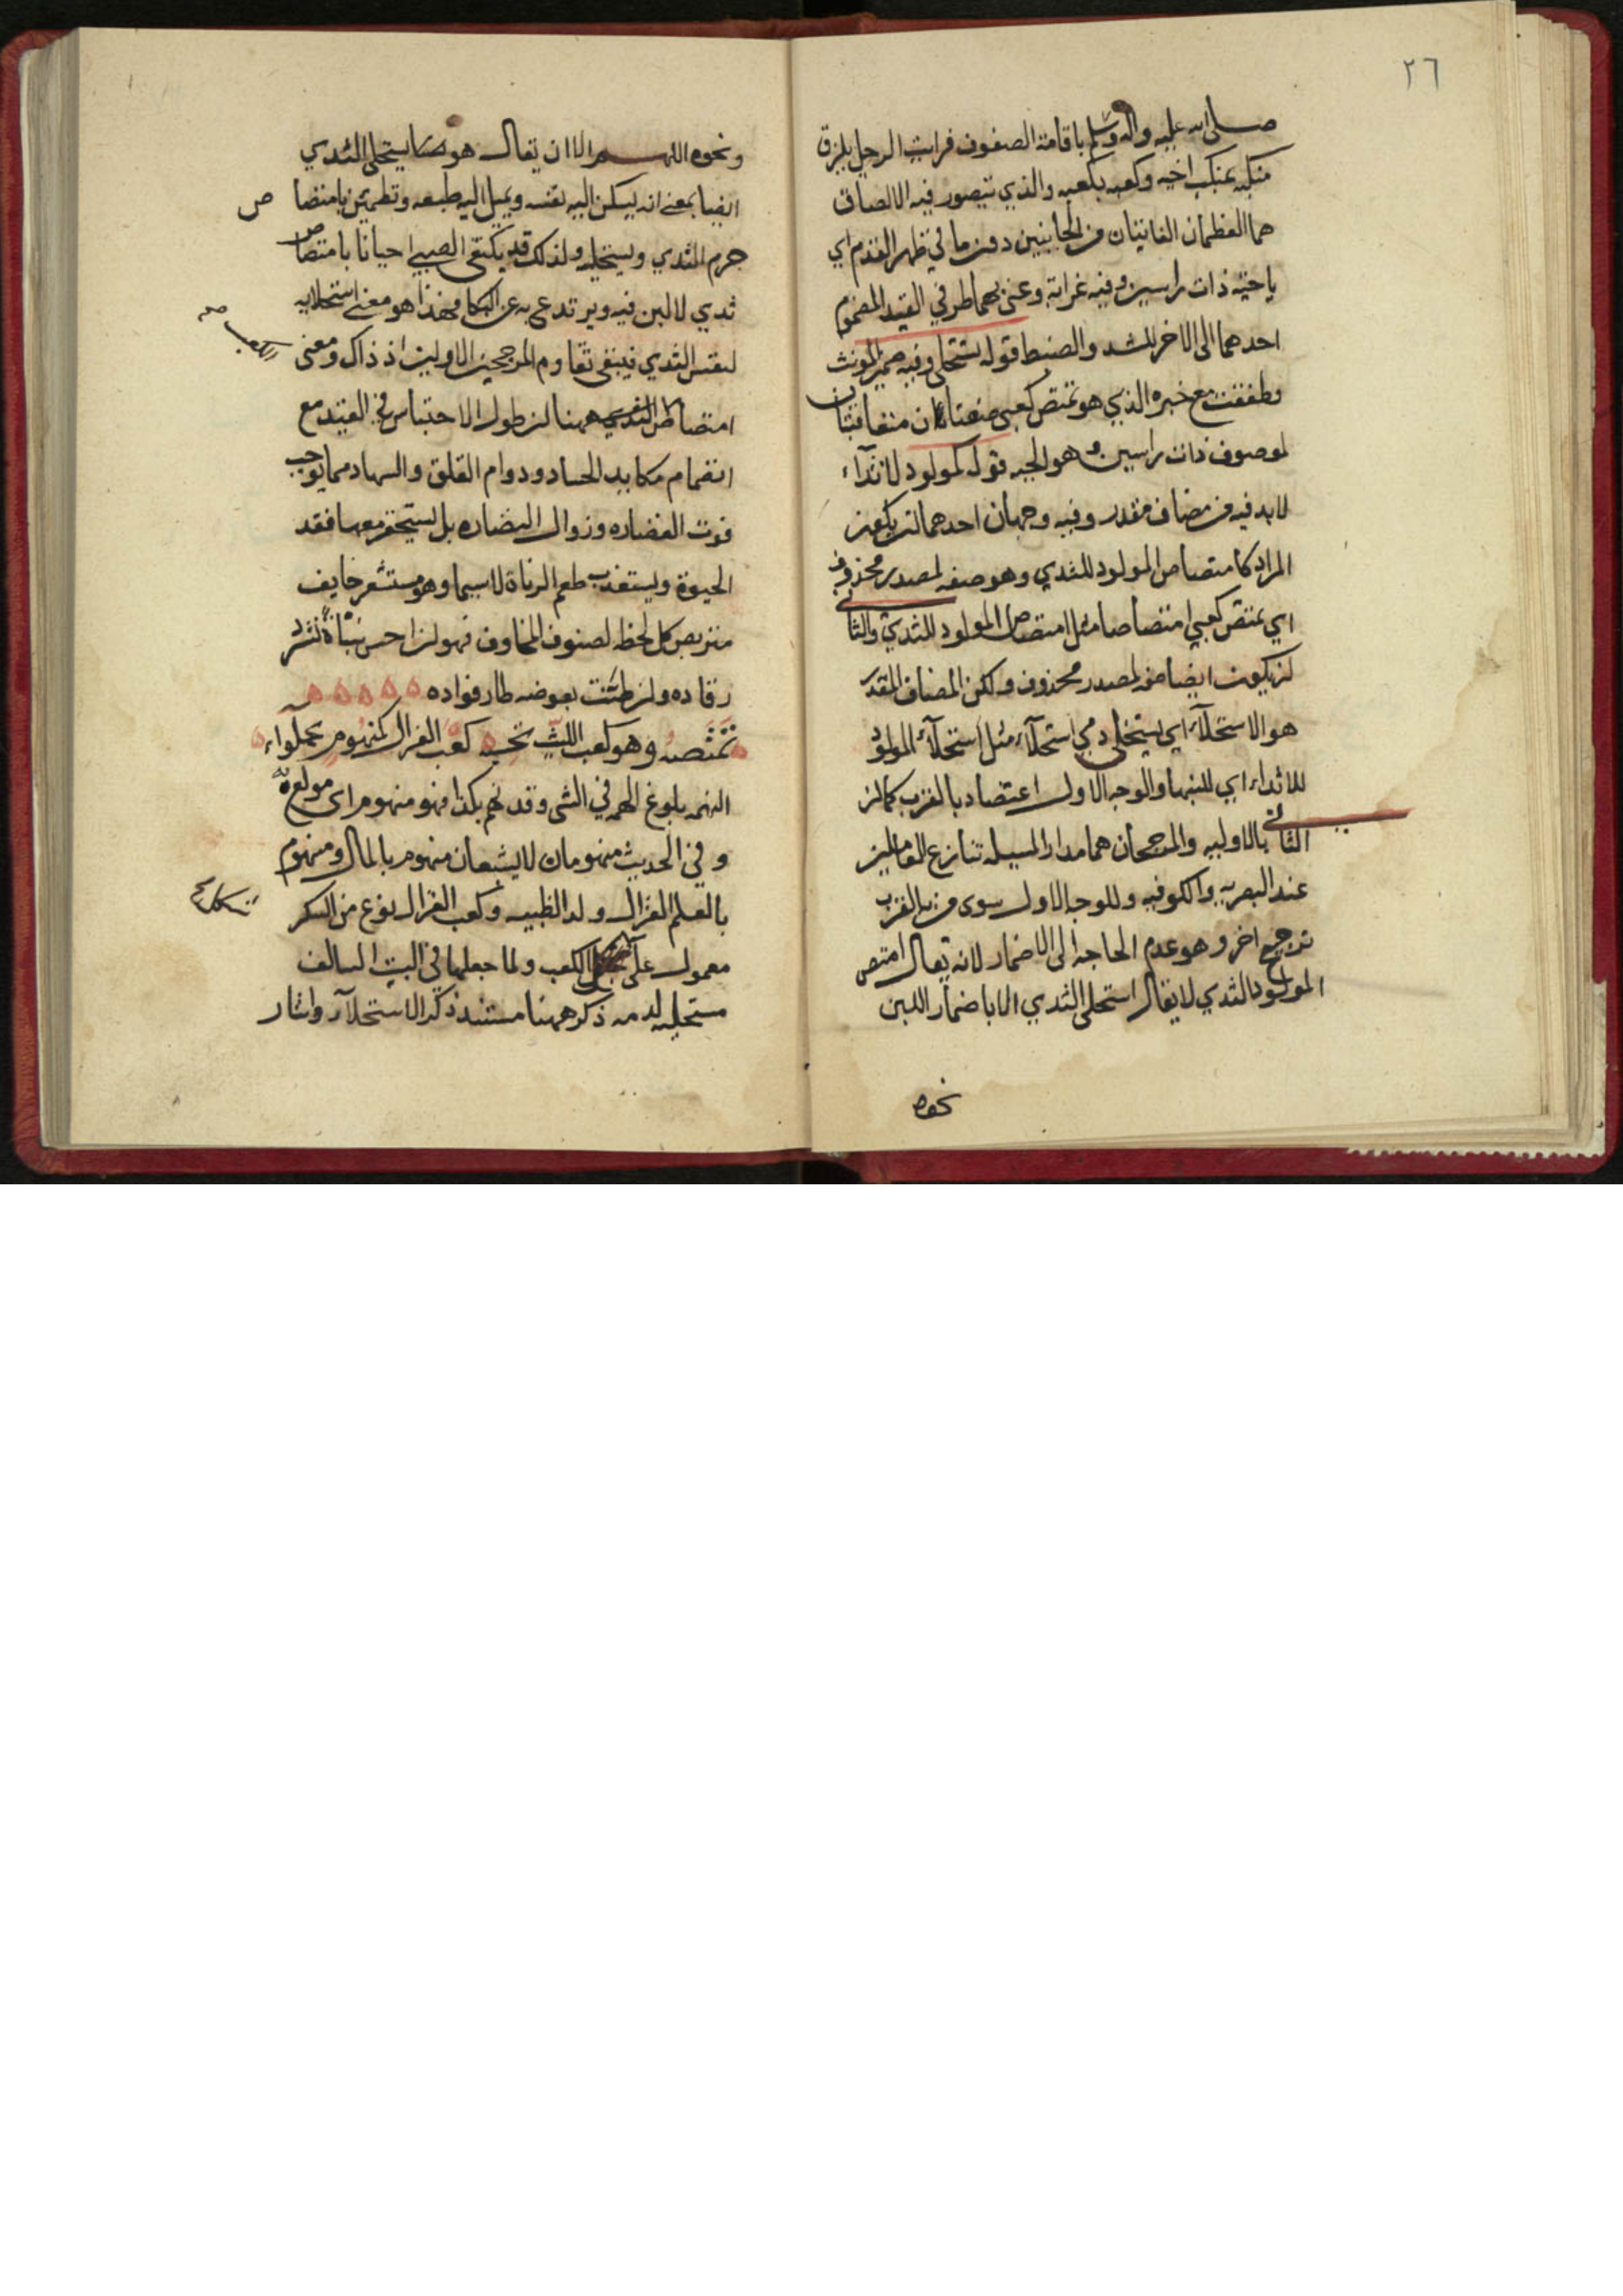 ٢٦
صلى الله عليه واله وسلم باقامة الصفوف فرايت الرجل يلزق
منكبه بمنكب اخيه وكعبه بكعبه والذي يتصور فيه الالصاق
هما العظمان الناتيان من الجانبين دون ما في ظهر القدم اي
يا حيّه ذات راسين وفيه غرابة وعنى بهما طرفي القيد المضموم
احدهما الى الاخر للشد والضبط قوله تستحلى وفيه ضمير المونث
وطفقت مع خبره الذي هو تمتص كعبي صفتان متعاقبتان
لموصوف ذات راسين وهو الحيه قوله كمولود لاثداء
لا بد فيه من مضاف مقدر وفيه وجهان احدهما ان يكون
المراد كامتصاص المولود للثدي وهو صفه لمصدر محذوف
اي تمتص كعبي امتصاصا مثل امتصاص المولود للثدي والثاني
ان يكون ايضا صفه لمصدر محذوف ولكن المضاف المقدر
هو الاستحلآء اي يستحلى دمي استحلآء مثل استحلآء المولود
للاثداء اي للبنها والوجه الاول اعتضاد بالقرب كما ان
الثاني بالاوليه والمرجحان هما مدار المسيله تنازع العاملين
عند البصريه والكوفيه وللوجه الاول سوى مزيه القرب
ترجيح اخر وهو عدم الحاجه الى الاضمار لانه يقال امتص
المولود الثدي لا يقال استحلى الثدي الا باضمار اللبن
نحوه
ونحوه اللهم الا ان يقال هو يستحلى الثدي
ايضا بمعنى انه يسكن اليه نفسه ويميل اليه طبعه وتطمين بامتصا ص
جرم الثدي ويستحليه ولذلك قد يكتفى الصبي احيانا بامتصاص
ثدي لا لبن فيه ويرتدع به عن البكا فهذا هو معنى استحلابه
لنفس الثدي فيبقى تقاوم المرجحين الاولين اذ ذاك ومعنى
امتصاص الكعب صح ههنا ان طول الاحتباس في القيد مع
انضمام مكايد الحساد ودوام القلق والسهاد مما يوجب
فوت الغضاره وزوال النضاره بل يستحقر معها فقد
الحيوة ويستعذب طعم الوفاة لا سيما وهو مستشعر خايف
متربص كل لحظه لصنوف المخاوف فهو ان احس نبأة شرد
رقاده وان طنت بعوضه طار فواده
تمتصه وهو كعب الليث تحسبه كعب الغزال كمنهوم بحلواء
النهمه بلوغ الهمه في الشي وقد نهم بكذا فهو منهوم اى مولع به
وفي الحديث منهومان لا يشبعان منهوم بالمال ومنهوم
بالعلم الغزال ولد الظبيه وكعب الغزال نوع من السكر
معمول على شكل الكعب ولما جعلها في البيت السالف
مستحليه لدمه ذكر ههنا مستند ذكر الاستحلآء واشار